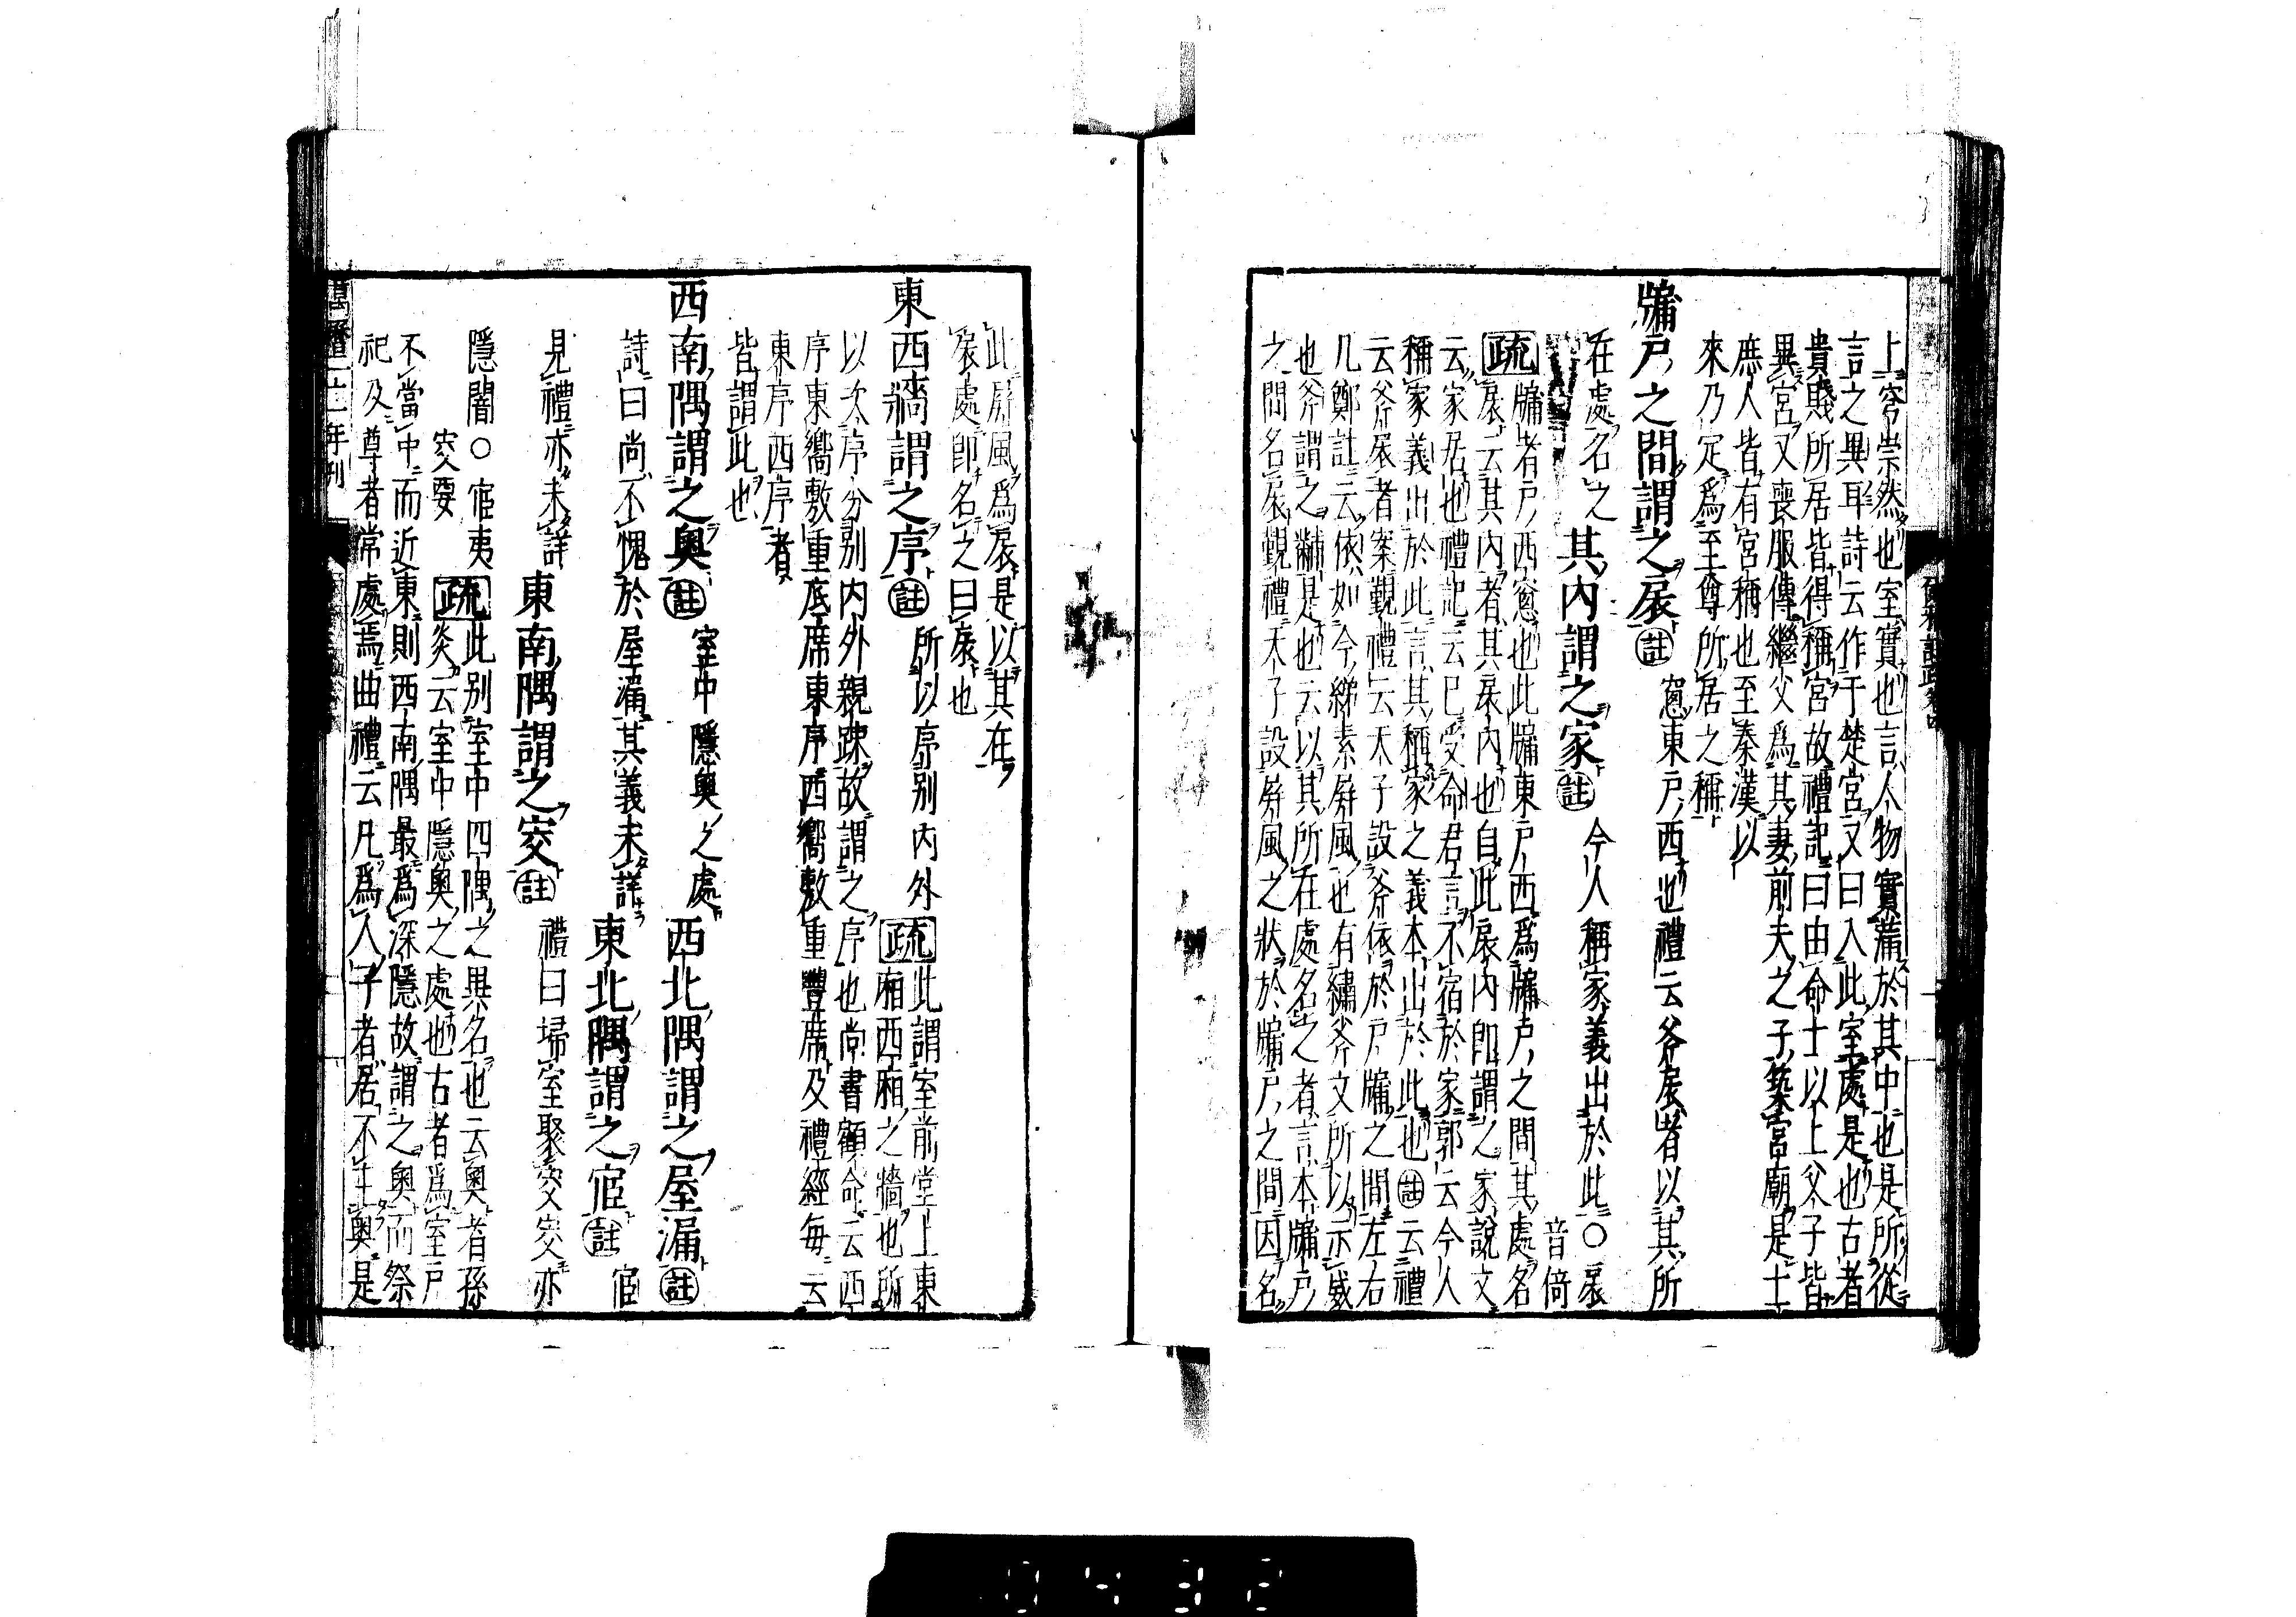 上穹崇然也室實也言人物實滿於其中也是所從
言之異耳詩云作于楚宮又曰入此室處是也古者
貴賤所居皆得稱宮故禮記曰由命士以上父子皆
異宮又喪服傳繼父爲其妻前夫之子築宮廟是士
庶人皆有宮稱也至秦漢以
來乃定爲至尊所居之稱
牖戶之間謂之扆註窻東戶西也禮云斧扆者以其所
在處名之其內謂之家註今人稱家義出於此○扆
音倚
疏牖者戶西窻也此牖東戶西爲牖戶之間其處名
扆云其內者其扆內也自此扆內即謂之家說文
云家居也禮記云已受命君言不宿於家郭云今人
稱家義出於此言其稱家之義本出於此也註云禮
云斧扆者案覲禮云天子設斧依於戶牖之間左右
几鄭註云依如今綈素屏風也有繡斧文所以示威
也斧謂之黼是也云以其所在處名之者言本牖戶
之間名扆覲禮天子設屏風之狀於牖戶之間因名
此屏風爲扆是以其在
扆處即名之曰扆也
東西牆謂之序註所以序別內外疏此謂室前堂上東
廂西廂之牆也所
以次序分別內外親踈故謂之序也尚書顧命云西
序東嚮敷重底席東序西嚮敷重豐席及禮經每云
東序西序者
皆謂此也
西南隅謂之奧註室中隱奧之處西北隅謂之屋漏註
詩曰尚不愧於屋漏其義未詳東北隅謂之宧註宧
見禮亦未詳東南隅謂之窔註禮曰埽室聚窔窔亦
隱闇○宧夷
窔要疏此別室中四隅之異名也云奧者孫
炎云室中隱奧之處也古者爲室戶
不當中而近東則西南隅最爲深隱故謂之奧而祭
祀及尊者常處焉曲禮云凡爲人子者居不主奧是